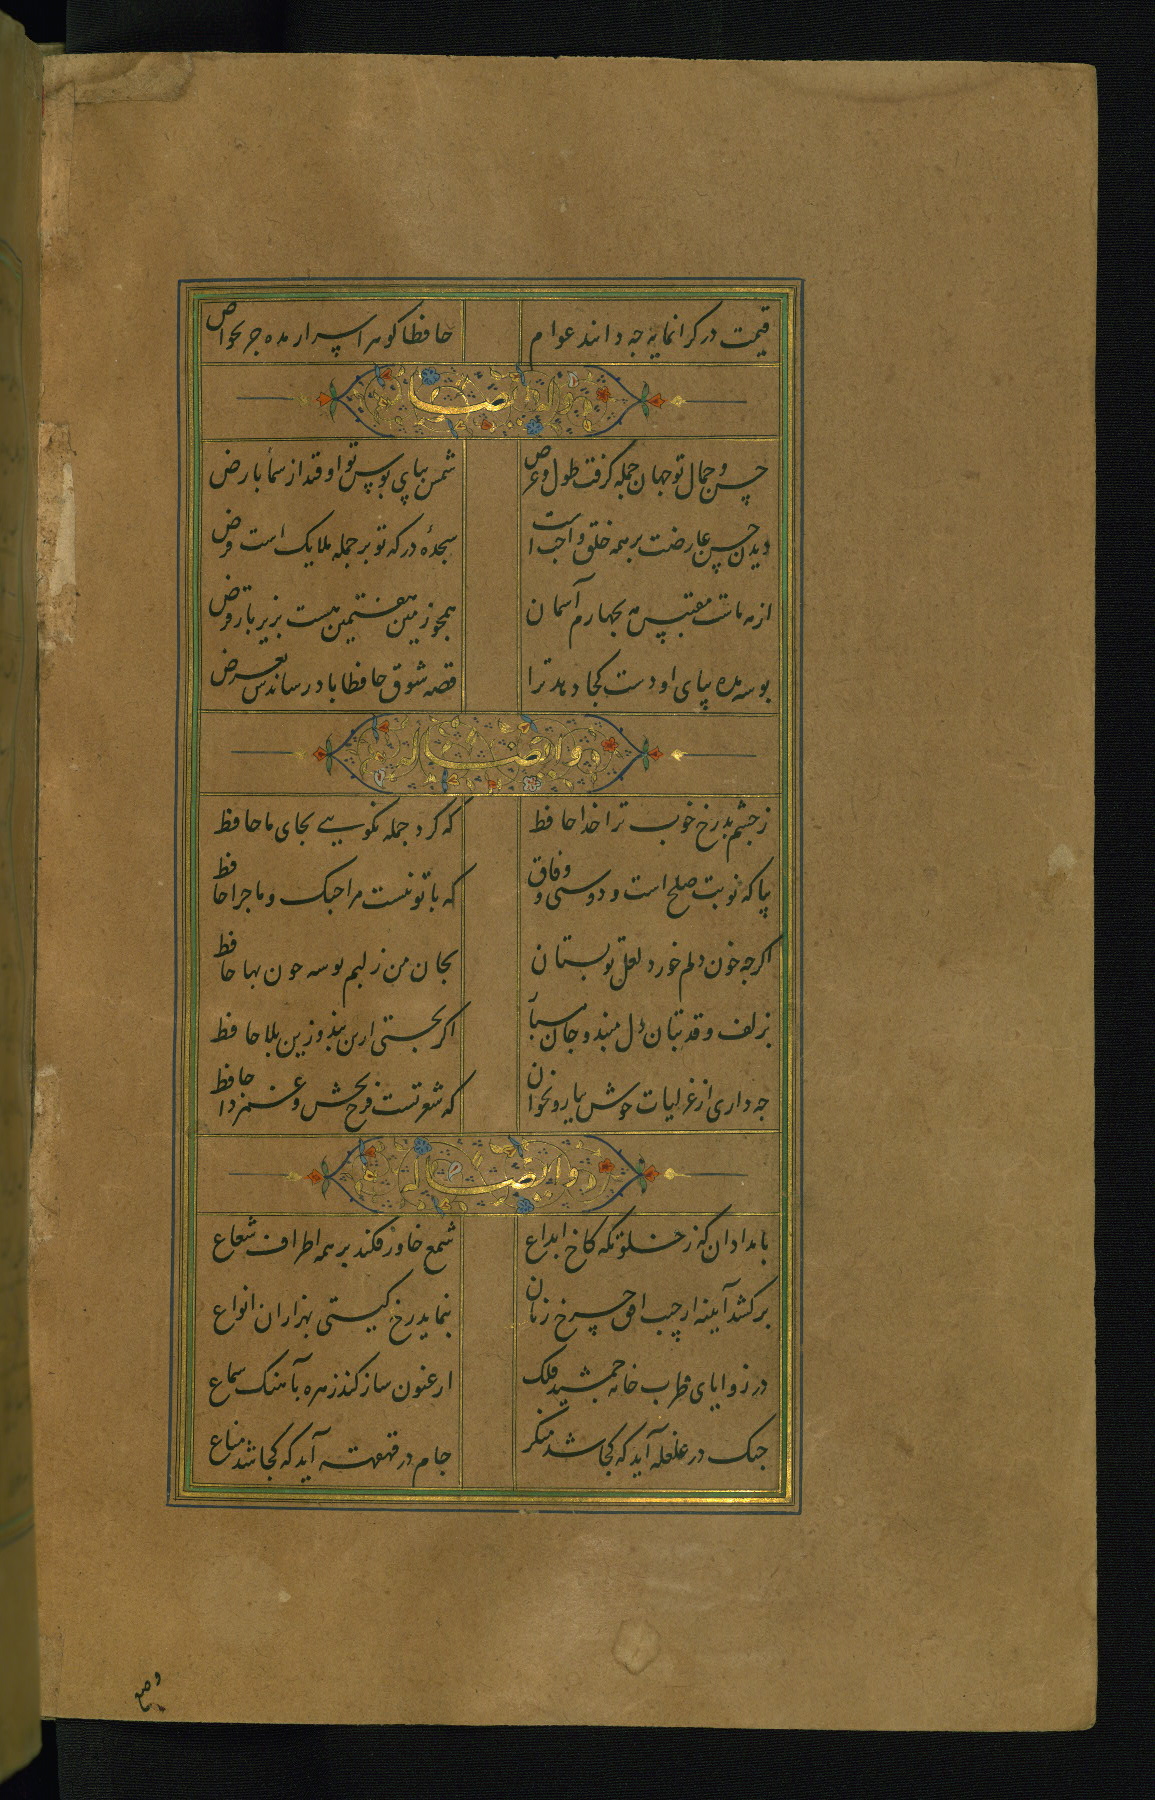 قیمت در کرانمایه جه دانند عوام
حافظا کوهر اسرار مده جز بخواص
وله ایضا
حسن و جمال تو جهان جمله کرفت طول و عرض
شمس بپای بوس تو اوفتد از سما بارض
دیدن حسن عارضت بر همه خلق واجب است
سجدهٔ درکه تو بر جمله ملایک است فرض
از مه مات مقتبس مه بچهارم آسمان
همچو زمین هفتمین هست بزیر بار قرض
بوسه مده بپای او دست کجا دهد ترا
قصه شوق حافظا باد رساندس بعرض
و ایضا له
ز جشم بد رخ خوب ترا خدا حافظ
که کرد جمله نکویی بجای ما حافظ
بیا که نوبت صلح است و دوستی و وفاق
که با تو نیست مرا جنک و ماجرا حافظ
اکرجه خون دلم خورد لعل تو بستان
بجان من ز لبم بوسه خون بها حافظ
بزلف و قد بتان دل مبند و جان
اکر بجستی ازین بند و زین بلا حافظ
جه داری از غزلیات خوش بیار و بخوان
که شعر تست فرح بخش و غمزدا حافظ
و ایضا له
بامدادان که ز خلوتکه کاخ ابداع
شمع خاور فکند بر همه اطراف شعاع
برکشد آینه از جیب افق چرخ زنان
بنماید رخ کیتی بهزاران انواع
در زوایای طرب خانه جمشید فلک
ارغنون ساز کند زهره بآهنک سماع
جنک در غلغله آید که کجا شد منکر
جام در قهقهه آید که کجا شد مناع
وضع